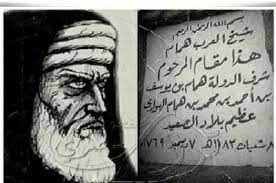 بسم الله الرحمن الرحيم
شيخ العرب همام
هذا مقام المرحوم
شرف الدولة همام بن يوسف
بن أحمد بن محمد بن همام الهواري
عظيم بلاد الصعيد
٨ شعبان ١١٨٣هـ ٧ ديسمبر ١٧٦٩